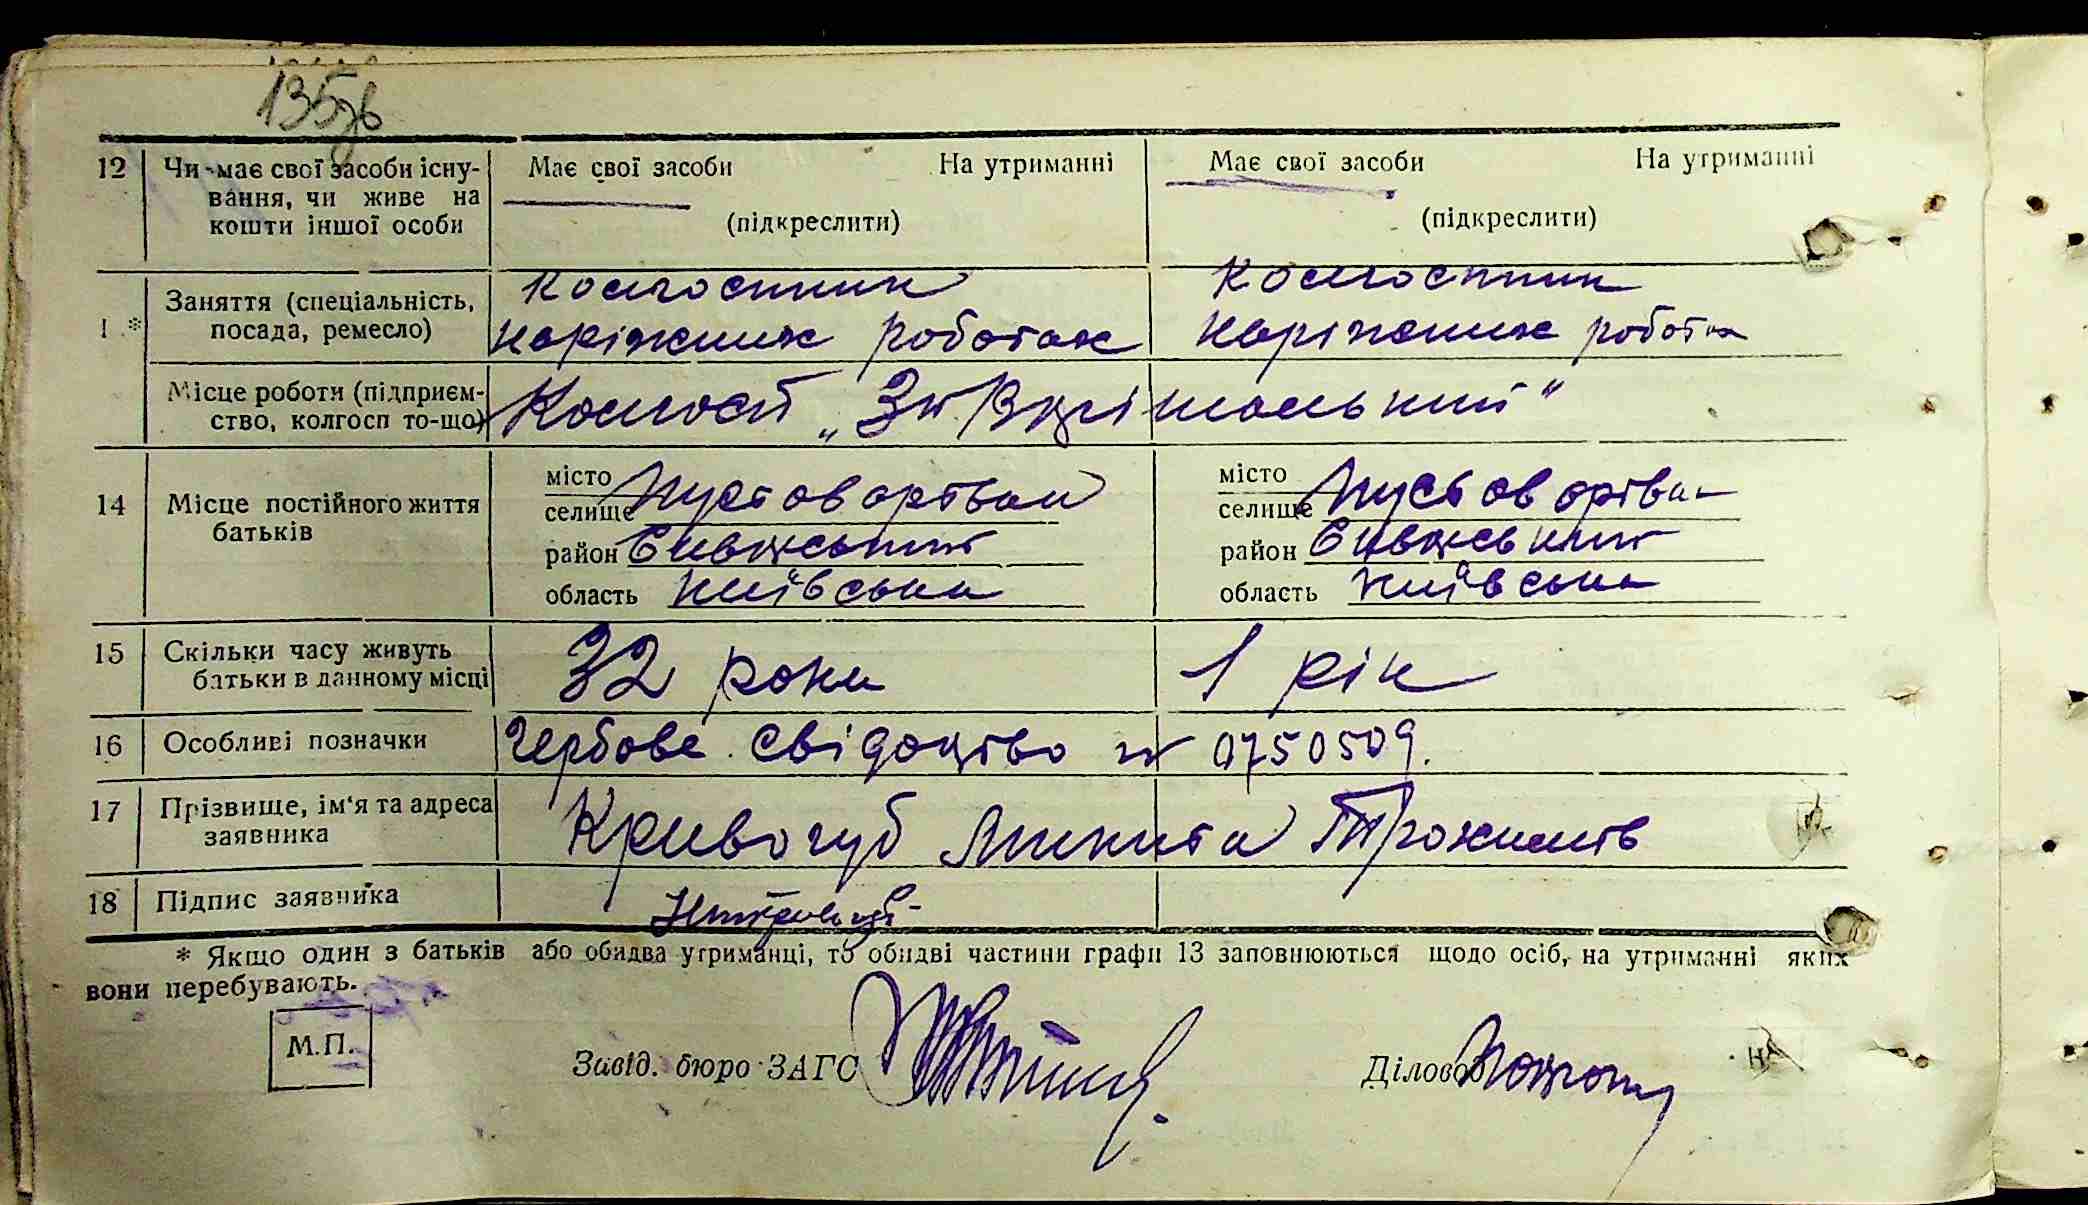 135зв
12 Чи має свої засоби існу- Має свої засоби На утриманні Має свої засоби На утриманні
вання, чи живе на (підкреслити) (підкреслити)
кошти іншої особи
Заняття (спеціальність, колгоспник колгоспник
1 * посада, ремесло) на ріжних роботах на ріжних роботах
Місце роботи (підприєм- Колгосп „
ство, колгосп то-що)
14 Місце постійного життя місто місто
батьків селище Пустоварівка селище Пустоварівка
район район
область Київська область Київська
15 Скільки часу живуть 32 роки 1 рік
батьки в данному місці
16 Особливі позначки Гербове свідоцтво № 0750509.
17 Прізвище, ім'я та адреса Кривогуб Микита
заявника
18 Підпис заявника
* Якщо один з батьків або обидва утриманці, то обидві частини графи 13 заповнюються щодо осіб, на утриманні яких
вони перебувають.
М.П.
Завід. бюро ЗАГС Діловод